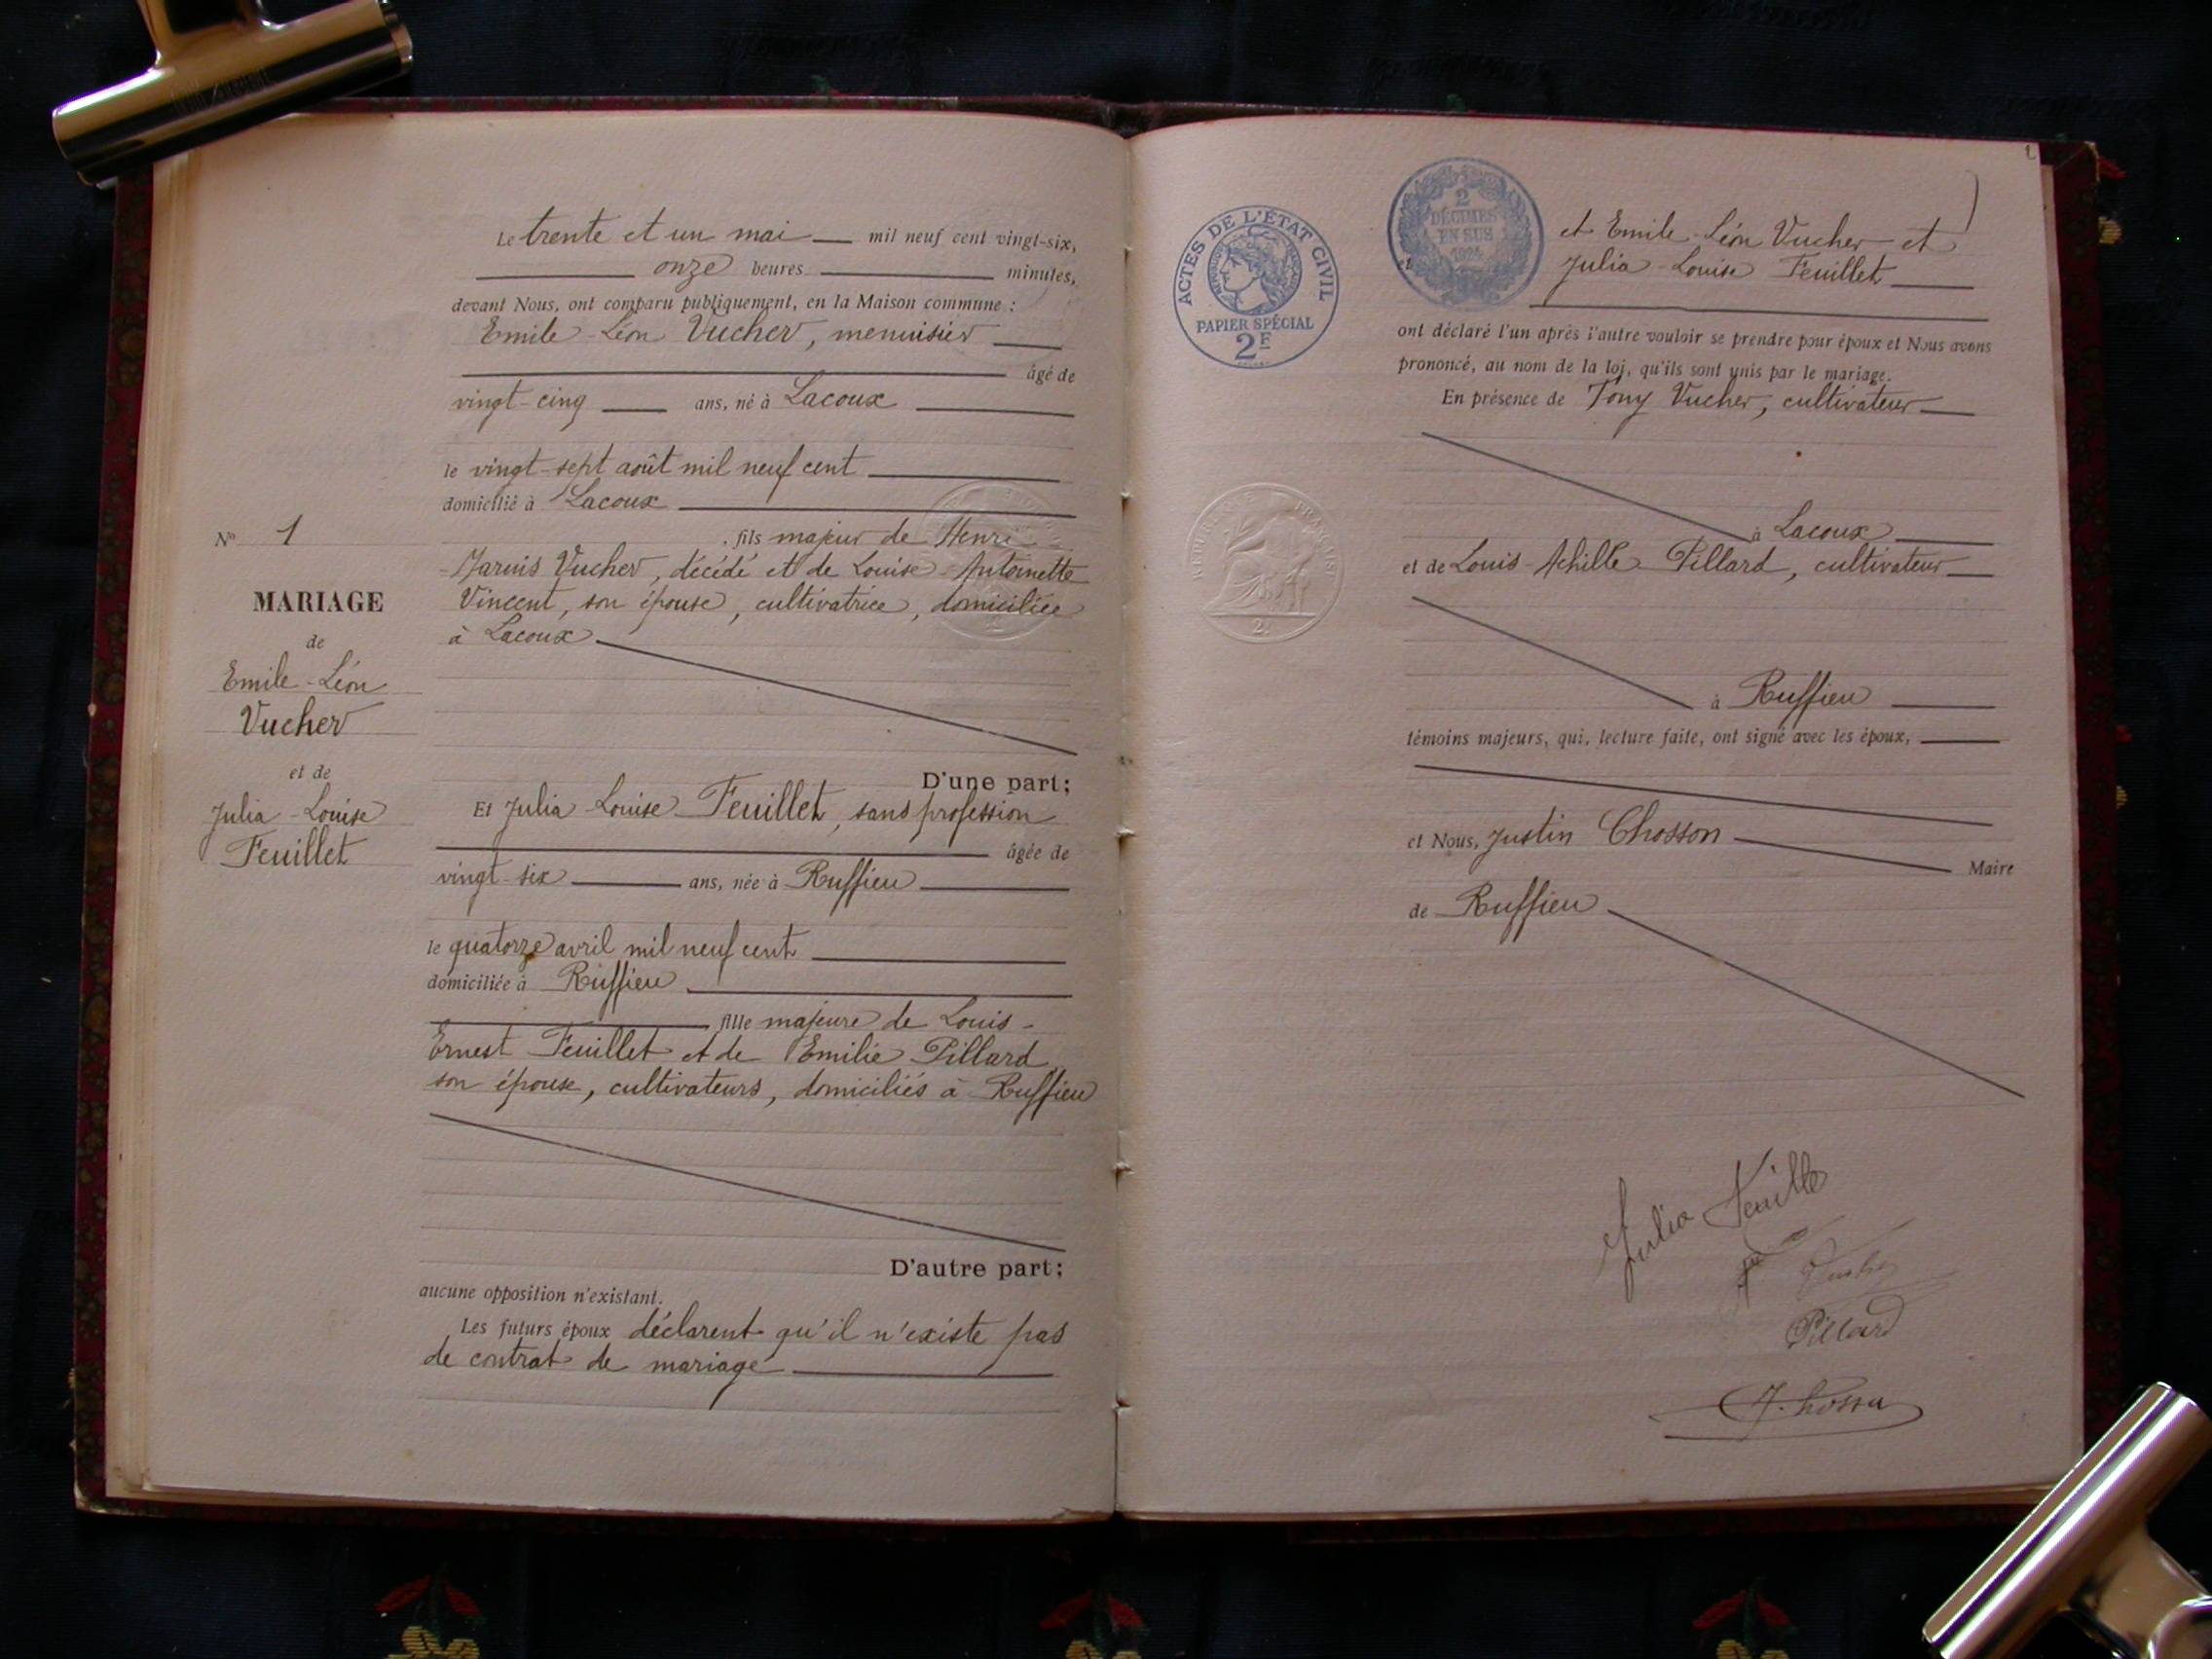 Le trente et un mai mil neuf cent vingt-six,
onze heures minutes,
devant Nous, ont comparu publiquement, en la Maison commune :
Emile-Léon Vucher, menuisier
âgé de
vingt-cinq ans, né à Lacoux
le vingt-sept août mil neuf cent
domicilié à Lacoux
fils majeur de Henri
Marius Vucher, décédé et de Louise-Antoinette
Vincent, son épouse, cultivatrice, domiciliée
à Lacoux
N° 1
MARIAGE
de
Emile-Léon
Vucher
et de
Julia-Louise
Feuillet
D'une part;
Et Julia-Louise Feuillet, sans profession
âgée de
vingt-six ans, née à Ruffieu
le quatorze avril mil neuf cent
domiciliée à Ruffieu
fille majeure de Louis-
Ernest Feuillet et de Emilie Pillard
son épouse, cultivateurs, domiciliés à Ruffieu
D'autre part;
aucune opposition n'existant.
Les futurs époux déclarent qu'il n'existe pas
de contrat de mariage
ACTES DE L'ÉTAT CIVIL
PAPIER SPÉCIAL
2F
2
DÉCIMES
EN SUS
1924
et Emile-Léon Vucher et
Julia-Louise Feuillet
ont déclaré l'un après l'autre vouloir se prendre pour époux et Nous avons
prononcé, au nom de la loi, qu'ils sont unis par le mariage.
En présence de Tony Vucher, cultivateur
à Lacoux
et de Louis-Achille Pillard, cultivateur
à Ruffieu
témoins majeurs, qui, lecture faite, ont signé avec les époux,
et Nous, Justin Chosson
Maire
de Ruffieu
REPUBLIQUE FRANÇAISE
Julia Feuille
Pillard